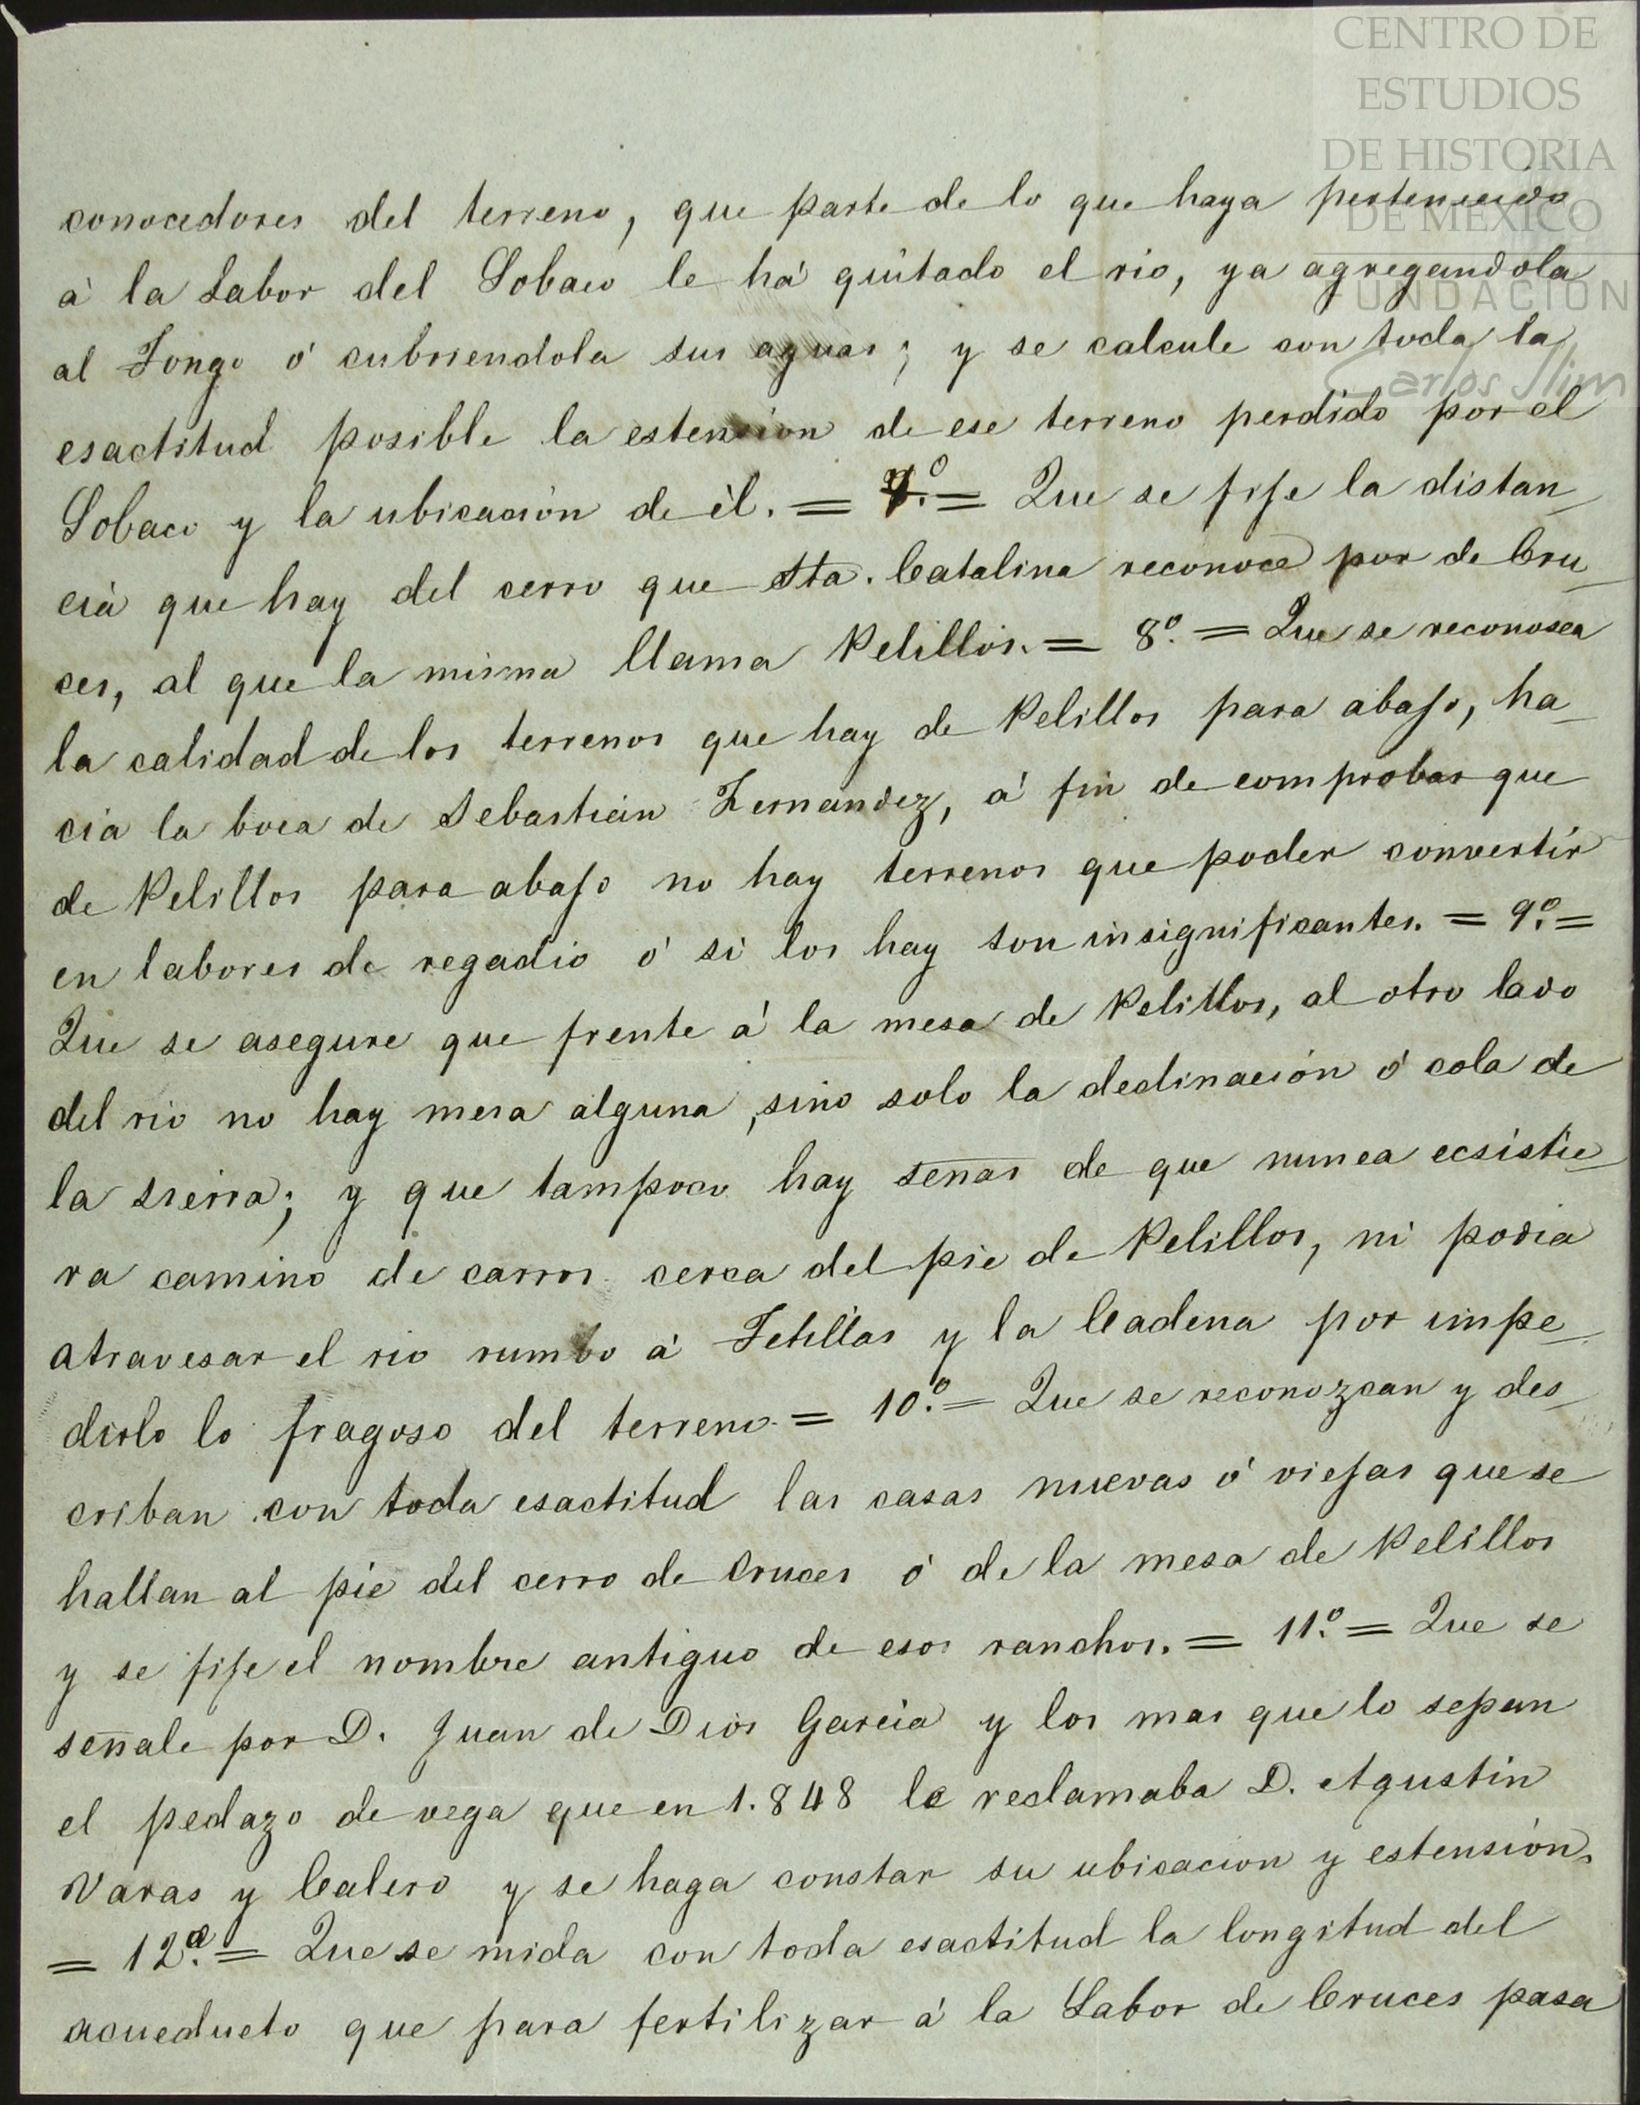 CENTRO DE
ESTUDIOS
DE HISTORIA
DE MÉXICO
FUNDACIÓN
Carlos Slim
conocedores del terreno, que parte de lo que haya pertenecido
á la Labor del Sobaco le há quitado el rio, ya agregandola
al Tongo ó cubriendola sus aguas; y se calcule con toda la
esactitud posible la estension de ese terreno perdido por el
Sobaco y la ubicación de él. = 7.º = Que se fije la distan-
cia que hay del cerro que Sta. Catalina reconoce por de Cru-
ces, al que la misma llama Pelillos. = 8.º = Que se reconosca
la calidad de los terrenos que hay de Pelillos para abajo, ha-
cia la boca de Sebastián Fernandez, á fin de comprobar que
de Pelillos para abajo no hay terrenos que poder convertír
en labores de regadio ó si los hay son insignificantes. = 9.º =
Que se asegure que frente á la mesa de Pelillos, al otro lado
del rio no hay mesa alguna, sino solo la declinación ó cola de
la sierra; y que tampoco hay señas de que nunca ecsistie-
ra camino de carros cerca del pie de Pelillos, ni podia
atravesar el rio rumbo á Tetillas y la Cadena por impe-
dirlo lo fragoso del terreno. = 10.º = Que se reconozcan y des-
criban con toda esactitud las casas nuevas ó viejas que se
hallan al pie del cerro de Cruces ó de la mesa de Pelillos
y se fije el nombre antiguo de esos ranchos. = 11.º = Que se
señale por D. Juan de Dios Garcia y los mas que lo sepan
el pedazo de vega que en 1.848 le reclamaba D. Agustin
Varas y Calero y se haga constar su ubicacion y estensión.
= 12.ª = Que se mida con toda esactitud la longitud del
acueducto que para fertilizar á la Labor de Cruces pasa